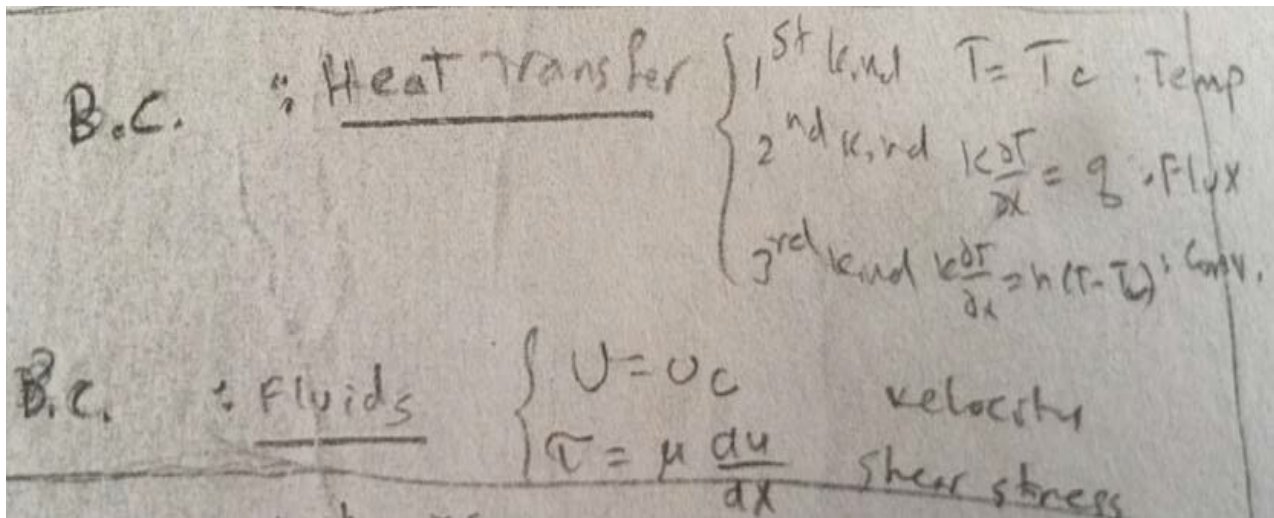 B.C. : Heat Transfer
1st kind T = Tc : Temp
2nd kind k ∂T/∂x = q : Flux
3rd kind k ∂T/∂x = h(T-Tc) : Conv.
B.C. : Fluids
U = Uc velocity
τ = μ du/dx shear stress